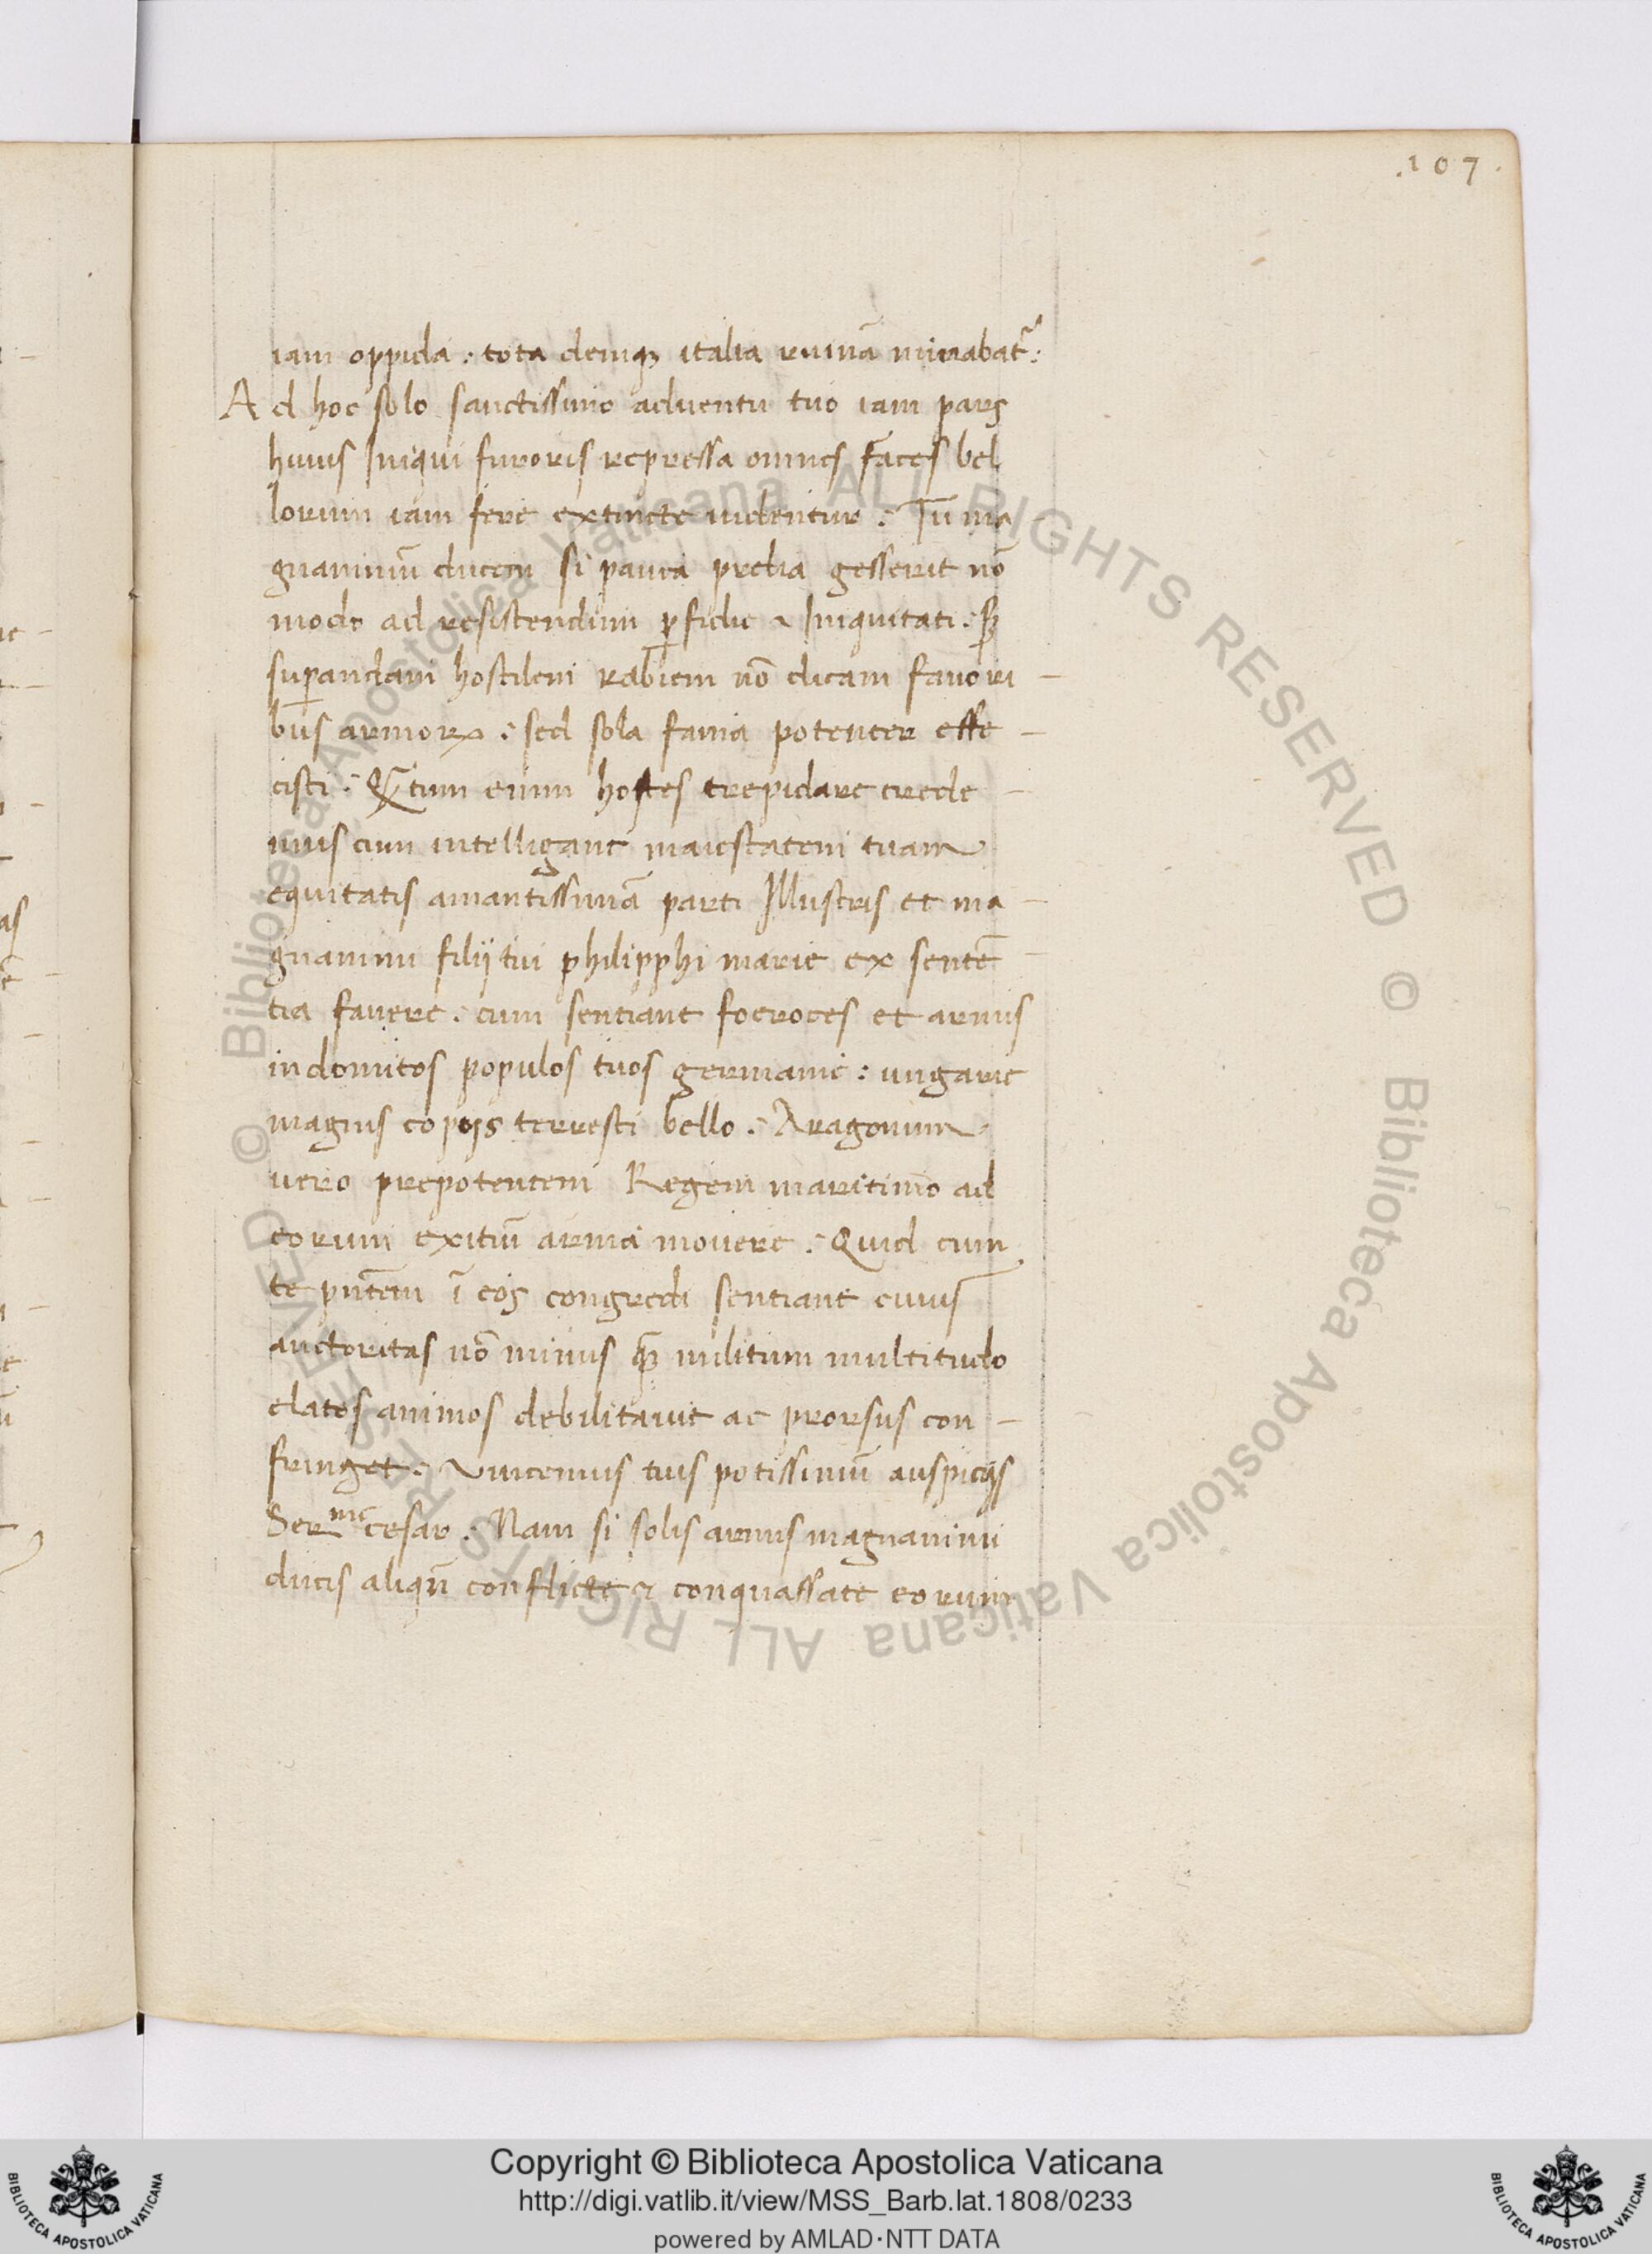 .107.
iam oppida : tota deniqꝫ italia ruinā minabat᷑ :
Ad hoc solo sanctissimo adventu tuo iam pars
huius Iniqui furoris repressa omnes faces bel
lorum iam fere extincte videntur . Tu ma
gnanimū ducem si pauca prelia gesserit nō
modo ad resistendum ꝑfidie ⁊ Iniquitati . sꝫ
suꝑandam hostilem rabiem nō dicam favori -
bus armoꝝ : sed sola fama potenter effe -
cisti . Qꝫtum enim hostes trepidare crede -
mus cum intelligant maiestatem tuam
equitatis amantissimā parti Illustris et ma -
gnanimi filij tui philipphi marie ex sentē -
tia favere . cum sentiant foeroces et armis
indomitos populos tuos germanie : ungarie
magnis copijs terresti bello . Aragonum
vero prepotentem Regem maritimo ad
eorum exitiū arma movere . Quid cum
te pñtem ī eos congredi sentiant cuius
auctoritas nō minus qꝫ militum multitudo
elatos animos debilitavit ac prorsus con -
fringet . Vincemus tuis potissimū auspicijs
Serᵐᵉ cesar . Nam si solis armis magnanimi
ducis aliqñ conflicte ⁊ conquassate eorum
Copyright © Biblioteca Apostolica Vaticana
http://digi.vatlib.it/view/MSS_Barb.lat.1808/0233
powered by AMLAD·NTT DATA
BIBLIOTECA APOSTOLICA VATICANA
BIBLIOTECA APOSTOLICA VATICANA
© Biblioteca Apostolica Vaticana ALL RIGHTS RESERVED © Biblioteca Apostolica Vaticana ALL RIGHTS RESERVED